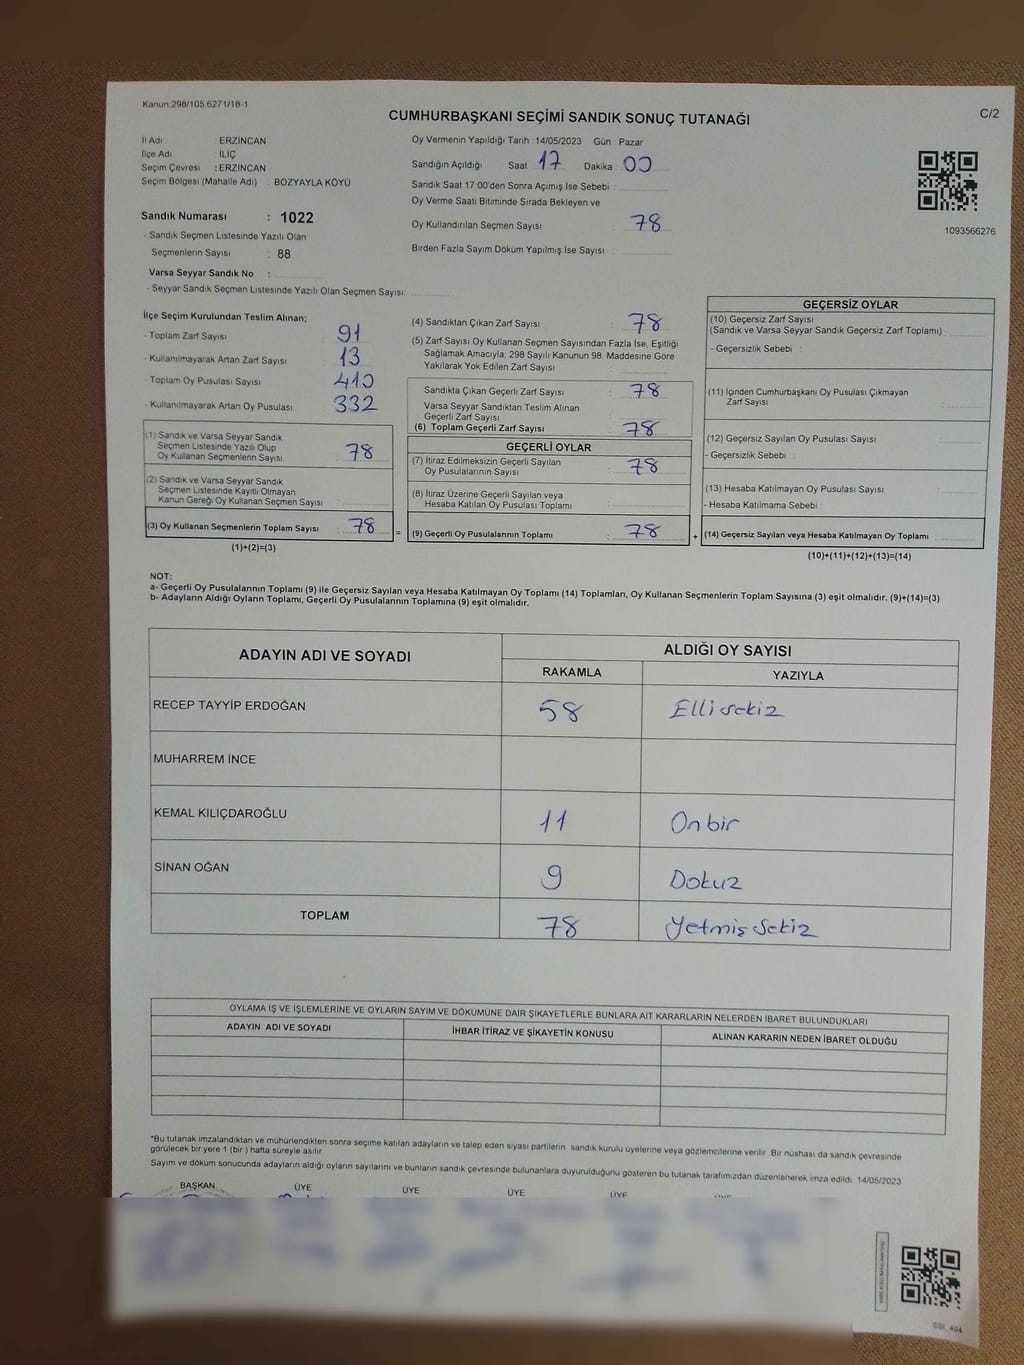 Kanun 298/105,6271/18-1
CUMHURBAŞKANI SEÇİMİ SANDIK SONUÇ TUTANAĞI
C/2
İl Adı : ERZİNCAN
İlçe Adı : İLİÇ
Seçim Çevresi : ERZİNCAN
Seçim Bölgesi (Mahalle Adı) : BOZYAYLA KÖYÜ
Sandık Numarası : 1022
- Sandık Seçmen Listesinde Yazılı Olan
Seçmenlerin Sayısı : 88
Varsa Seyyar Sandık No :
- Seyyar Sandık Seçmen Listesinde Yazılı Olan Seçmen Sayısı:
Oy Vermenin Yapıldığı Tarih : 14/05/2023 Gün : Pazar
Sandığın Açıldığı Saat : 17 Dakika : 00
Sandık Saat 17:00'den Sonra Açımış İse Sebebi :
Oy Verme Saati Bitiminde Sırada Bekleyen ve
Oy Kullandırılan Seçmen Sayısı : 78
Birden Fazla Sayım Döküm Yapılmış İse Sayısı :
1093566276
İlçe Seçim Kurulundan Teslim Alınan;
- Toplam Zarf Sayısı : 91
- Kullanılmayarak Artan Zarf Sayısı : 13
- Toplam Oy Pusulası Sayısı : 410
- Kullanılmayarak Artan Oy Pusulası : 332
(1) Sandık ve Varsa Seyyar Sandık
Seçmen Listesinde Yazılı Olup
Oy Kullanan Seçmenlerin Sayısı : 78
(2) Sandık ve Varsa Seyyar Sandık
Seçmen Listesinde Kayıtlı Olmayan
Kanun Gereği Oy Kullanan Seçmen Sayısı :
(3) Oy Kullanan Seçmenlerin Toplam Sayısı : 78
(1)+(2)=(3)
=
(4) Sandıktan Çıkan Zarf Sayısı : 78
(5) Zarf Sayısı Oy Kullanan Seçmen Sayısından Fazla İse, Eşitliği
Sağlamak Amacıyla; 298 Sayılı Kanunun 98. Maddesine Göre
Yakılarak Yok Edilen Zarf Sayısı :
Sandıkta Çıkan Geçerli Zarf Sayısı : 78
Varsa Seyyar Sandıktan Teslim Alınan
Geçerli Zarf Sayısı :
(6) Toplam Geçerli Zarf Sayısı : 78
GEÇERLİ OYLAR
(7) İtiraz Edilmeksizin Geçerli Sayılan
Oy Pusulalarının Sayısı : 78
(8) İtiraz Üzerine Geçerli Sayılan veya
Hesaba Katılan Oy Pusulası Toplamı :
(9) Geçerli Oy Pusulalarının Toplamı : 78
+
GEÇERSİZ OYLAR
(10) Geçersiz Zarf Sayısı
(Sandık ve Varsa Seyyar Sandık Geçersiz Zarf Toplamı) :
- Geçersizlik Sebebi :
(11) İçinden Cumhurbaşkanı Oy Pusulası Çıkmayan
Zarf Sayısı :
(12) Geçersiz Sayılan Oy Pusulası Sayısı :
- Geçersizlik Sebebi :
(13) Hesaba Katılmayan Oy Pusulası Sayısı :
- Hesaba Katılmama Sebebi :
(14) Geçersiz Sayılan veya Hesaba Katılmayan Oy Toplamı :
(10)+(11)+(12)+(13)=(14)
NOT:
a- Geçerli Oy Pusulalarının Toplamı (9) ile Geçersiz Sayılan veya Hesaba Katılmayan Oy Toplamı (14) Toplamları, Oy Kullanan Seçmenlerin Toplam Sayısına (3) eşit olmalıdır. (9)+(14)=(3)
b- Adayların Aldığı Oyların Toplamı, Geçerli Oy Pusulalarının Toplamına (9) eşit olmalıdır.
ADAYIN ADI VE SOYADI ALDIĞI OY SAYISI
RAKAMLA YAZIYLA
RECEP TAYYİP ERDOĞAN 58 Elli sekiz
MUHARREM İNCE
KEMAL KILIÇDAROĞLU 11 Onbir
SİNAN OĞAN 9 Dokuz
TOPLAM 78 Yetmiş sekiz
OYLAMA İŞ VE İŞLEMLERİNE VE OYLARIN SAYIM VE DÖKÜMÜNE DAİR ŞİKAYETLERLE BUNLARA AİT KARARLARIN NELERDEN İBARET BULUNDUKLARI
ADAYIN ADI VE SOYADI İHBAR İTİRAZ VE ŞİKAYETİN KONUSU ALINAN KARARIN NEDEN İBARET OLDUĞU
*Bu tutanak imzalandıktan ve mühürlendikten sonra seçime katılan adayların ve talep eden siyasi partilerin sandık kurulu üyelerine veya gözlemcilerine verilir. Bir nüshası da sandık çevresinde
görülecek bir yere 1 (bir ) hafta süreyle asılır
Sayım ve döküm sonucunda adayların aldığı oyların sayılarını ve bunların sandık çevresinde bulunanlara duyurulduğunu gösteren bu tutanak tarafımızdan düzenlenerek imza edildi. 14/05/2023
BAŞKAN ÜYE ÜYE ÜYE ÜYE